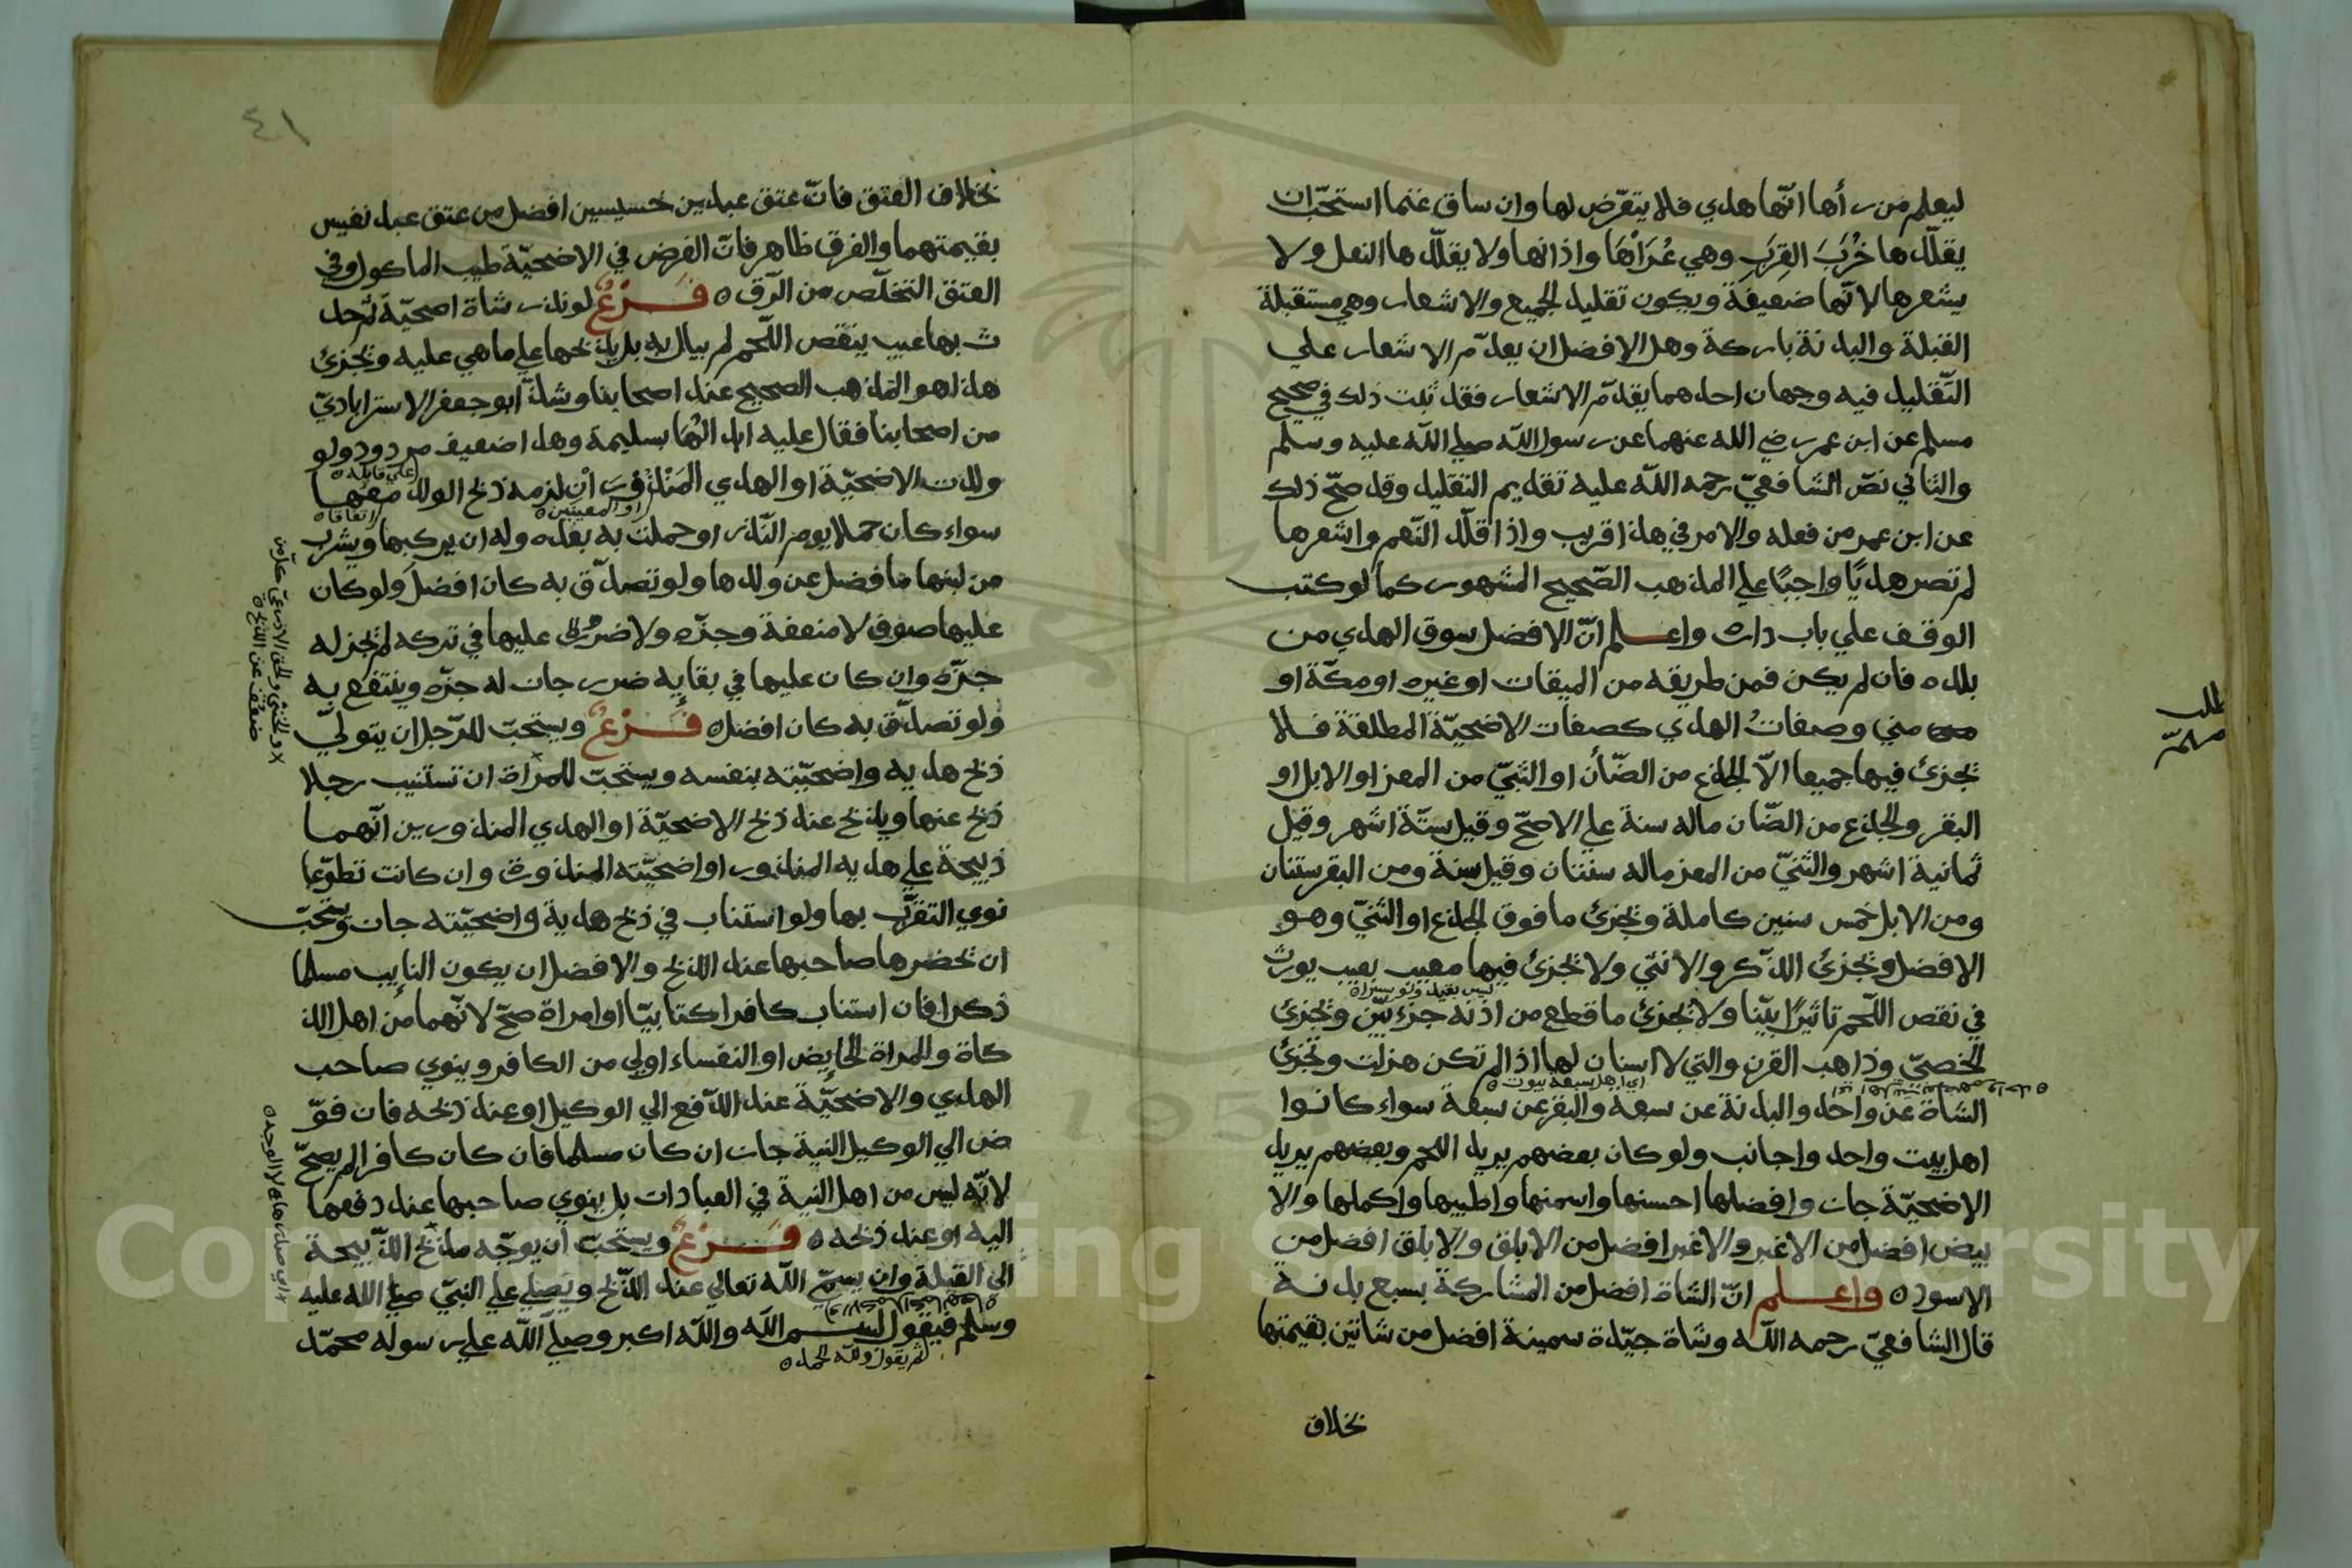 ليعلم من رأها انّها هدي فلا يتعرّض لها وان ساق غنما استحبّ ان
يقلّدها خُرَبَ القِرَبِ وهي عُرَاهَا واذانها ولا يقلّدها النعل ولا
يشعرها لانّها ضعيفة ويكون تقليد الجميع والاشعار وهي مستقبلة
القبلة والبدنة باركة وهل الافضل ان يقدّم الاشعار علي
التّقليد فيه وجهان احدهما يقدّم الاشعار فقد ثبت ذلك في صحيح
مسلم عن ابن عمر رضي الله عنهما عن رسول الله صلي الله عليه وسلم
والثاني نصّ الشافعيّ رحمه الله عليه تقديم التقليد وقد صحّ ذلك
عن ابن عمر من فعله والامر في هذا قريب واذا قلّد النّعم واشعرها
لم تصر هديًا واجبًا علي المذهب الصّحيح المشهور كما لو كتب
الوقف علي باب داره واعلم انّ الافضل سوق الهدي من
بلده فان لم يكن فمن طريقه من الميقات او غيره او مكّة او
مني وصفاتُ الهدي كصفات الاضحيّة المطلقة فلا
تجزئ فيها جميعا الاّ الجذع من الضّأن او الثنيّ من المعز او الابل او
البقر والجذع من الضّان ماله سنة علي الاصحّ وقيل ستّة اشهر وقيل
ثمانية اشهر والثنيّ من المعز ماله سنتان وقيل سنة ومن البقر سنتان
ومن الابل خمس سنين كاملة وتجزئ ما فوق الجذع او الثنيّ وهو
الافضل وتجزئ الذّكر والانثي ولا تجزئ فيها معيب بعيب يورث
في نقص اللّحم تاثيرًا بيّنا ولا تجزئ ما قطع من اذنه جزء بيّن وتجزئ
الخصيّ وذاهب القرن والتي لا اسنان لها اذا لم تكن هزلت وتجزئ
اي اهل سبعة بيوت
الشاة عن واحد والبدنة عن سبعة والبقر عن سبعة سواء كانوا
اهل بيت واحد واجانب ولو كان بعضهم يريد اللحم وبعضهم يريد
الاضحيّة جاز وافضلها احسنها واسمنها واطيبها واكملها والا
بيض افضل من الاغبر والاغبر افضل من الابلق والابلق افضل من
الاسود واعلم انّ الشاة افضل من المشاركة بسبع بدنة
قال الشافعيّ رحمه الله وشاة جيّدة سمينة افضل من شاتين بقيمتها
بخلاف
٤١
بخلاف العتق فانّ عتق عبدين خسيسين افضل من عتق عبد نفيس
بقيمتهما والفرق ظاهر فانّ الغرض في الاضحيّة طيب الماكول وفي
العتق التخلّص من الرّق فَرْعٌ لو نذر شاة اضحيّة ثم حد
ث بها عيب ينقص اللّحم لم يبال به بل يذبحها علي ما هي عليه وتجزئ
هذا هو المذهب الصحيح عند اصحابنا وشذّ ابو جعفر الاسترابادي
من اصحابنا فقال عليه ابدالُهَا بسليمة وهذا ضعيف مردود ولو
ولدت الاضحيّة او الهدي المَنْذُورَانِ لزمه ذبح الولد معها
او المعينين اتفاقا
سواء كان حملا يوم النّذر او حملت به بعده وله ان يركبها ويشرب
من لبنها ما فضل عن ولدها ولو تصدّق به كان افضل ولو كان
عليها صوف لا منفعة وجزّه ولا ضرر عليها في تركه لم تجز له
جزّه وان كان عليها في بقايه ضرر جاز له جزّه وينتفع به
ولو تصدّق به كان افضل فَرْعٌ ويستحبّ للرّجل ان يتولّي
ذبح هديه واضحيّته بنفسه ويستحبّ للمراة ان تستنيب رجلا
ذبح عنها ويذبح عند ذبح الاضحيّة او الهدي المنذورين انّهما
ذبيحة علي هديه المنذور او اضحيّته المنذورة وان كانت تطوّعا
نوي التقرّب بها ولو استناب في ذبح هدية واضحيّته جاز ويستحبّ
ان تحضرها صاحبها عند الذبح والافضل ان يكون النايب مسلما
ذكرا فان استناب كافرا كتابيّا او امراة صحّ لانّهما من اهل الذ
كاة والمراة الحايض او النفساء اولي من الكافر وينوي صاحب
الهدي والاضحيّة عند الدّفع الي الوكيل او عند ذبحه فان فوّ
ض الي الوكيل النية جاز ان كان مسلما فان كان كافرا لم يصحّ
لانّه ليس من اهل النية في العبادات بل ينوي صاحبها عند دفعها
اليه او عند ذبحه فَرْعٌ ويستحبّ ان يوجّه مذبح الذّبيحة
الي القبلة وان يسمّي الله تعالي عند الذّبح ويصلي علي النبيّ صلي الله عليه
وسلم فيقول بسم الله والله اكبر وصلّي الله علي رسوله محمّد
ثم يقول ولله الحمد
Copyright © King Saud University
1957